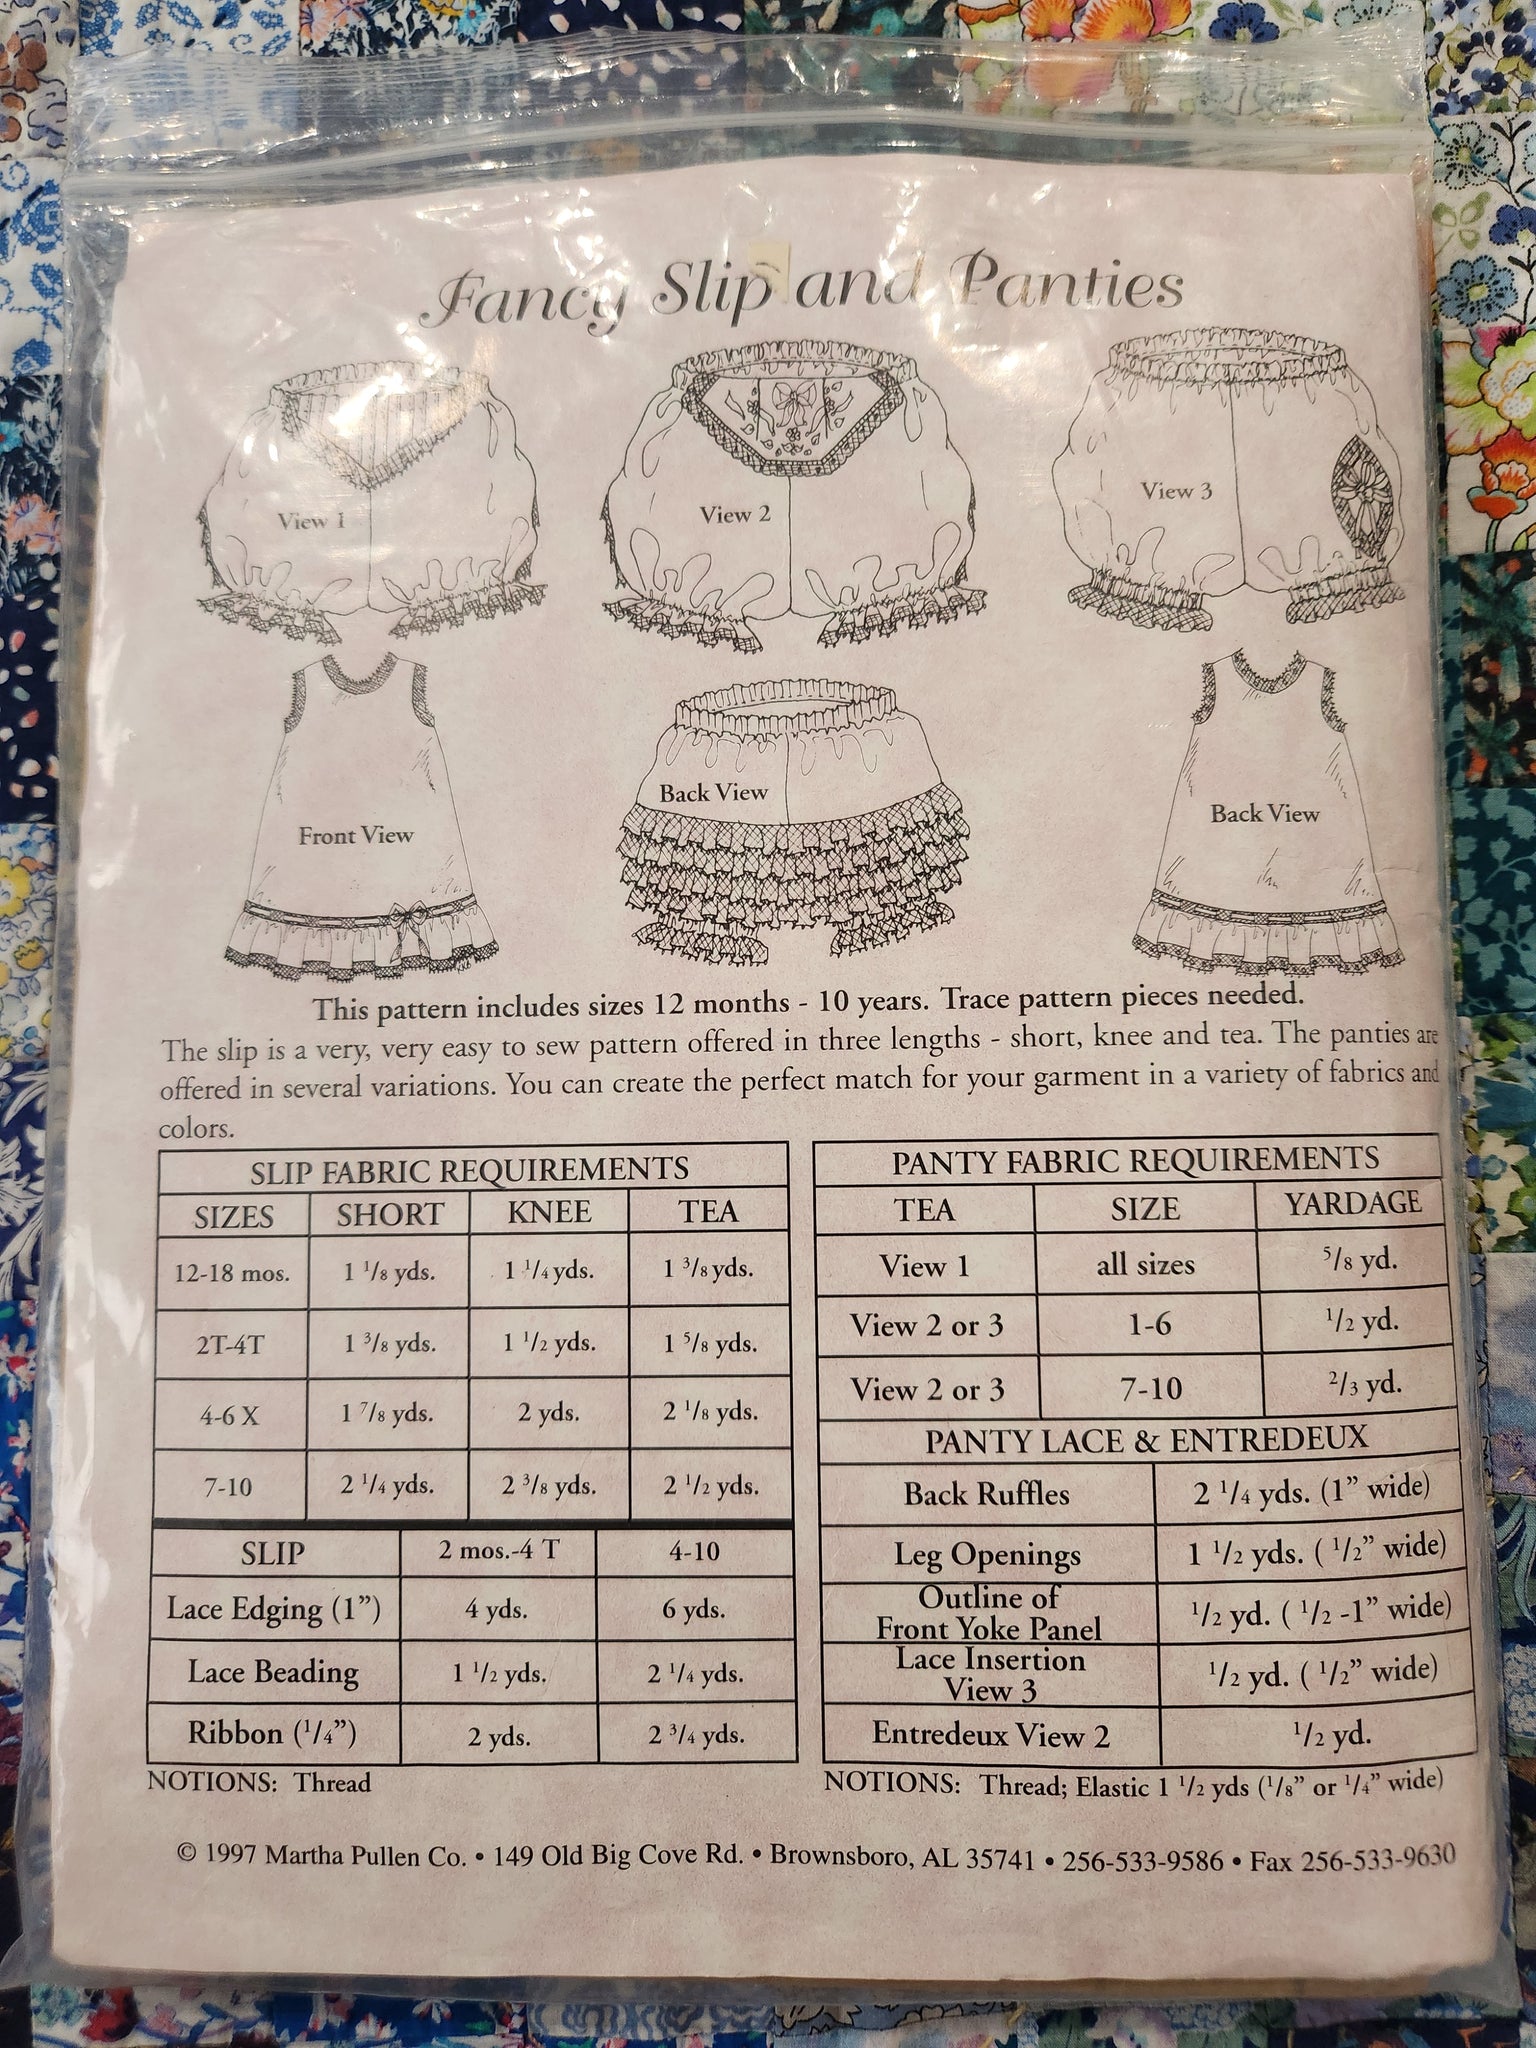 Fancy Slip and Panties
View 1
View 2
View 3
Front View
Back View
Back View
This pattern includes sizes 12 months - 10 years. Trace pattern pieces needed.
The slip is a very, very easy to sew pattern offered in three lengths - short, knee and tea. The panties are
offered in several variations. You can create the perfect match for your garment in a variety of fabrics and
colors.
SLIP FABRIC REQUIREMENTS
SIZES SHORT KNEE TEA
12-18 mos. 1 1/8 yds. 1 1/4 yds. 1 3/8 yds.
2T-4T 1 3/8 yds. 1 1/2 yds. 1 5/8 yds.
4-6 X 1 7/8 yds. 2 yds. 2 1/8 yds.
7-10 2 1/4 yds. 2 3/8 yds. 2 1/2 yds.
SLIP 2 mos.-4 T 4-10
Lace Edging (1”) 4 yds. 6 yds.
Lace Beading 1 1/2 yds. 2 1/4 yds.
Ribbon (1/4”) 2 yds. 2 3/4 yds.
NOTIONS: Thread
PANTY FABRIC REQUIREMENTS
TEA SIZE YARDAGE
View 1 all sizes 5/8 yd.
View 2 or 3 1-6 1/2 yd.
View 2 or 3 7-10 2/3 yd.
PANTY LACE & ENTREDEUX
Back Ruffles 2 1/4 yds. (1” wide)
Leg Openings 1 1/2 yds. ( 1/2” wide)
Outline of
Front Yoke Panel 1/2 yd. ( 1/2 -1” wide)
Lace Insertion
View 3 1/2 yd. ( 1/2” wide)
Entredeux View 2 1/2 yd.
NOTIONS: Thread; Elastic 1 1/2 yds (1/8” or 1/4” wide)
© 1997 Martha Pullen Co. • 149 Old Big Cove Rd. • Brownsboro, AL 35741 • 256-533-9586 • Fax 256-533-9630